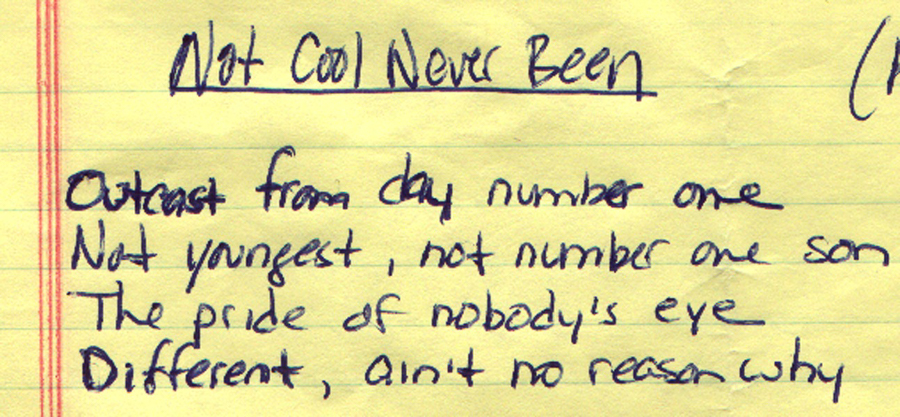 Not Cool Never Been (
Outcast from day number one
Not youngest, not number one son
The pride of nobody's eye
Different, ain't no reason why